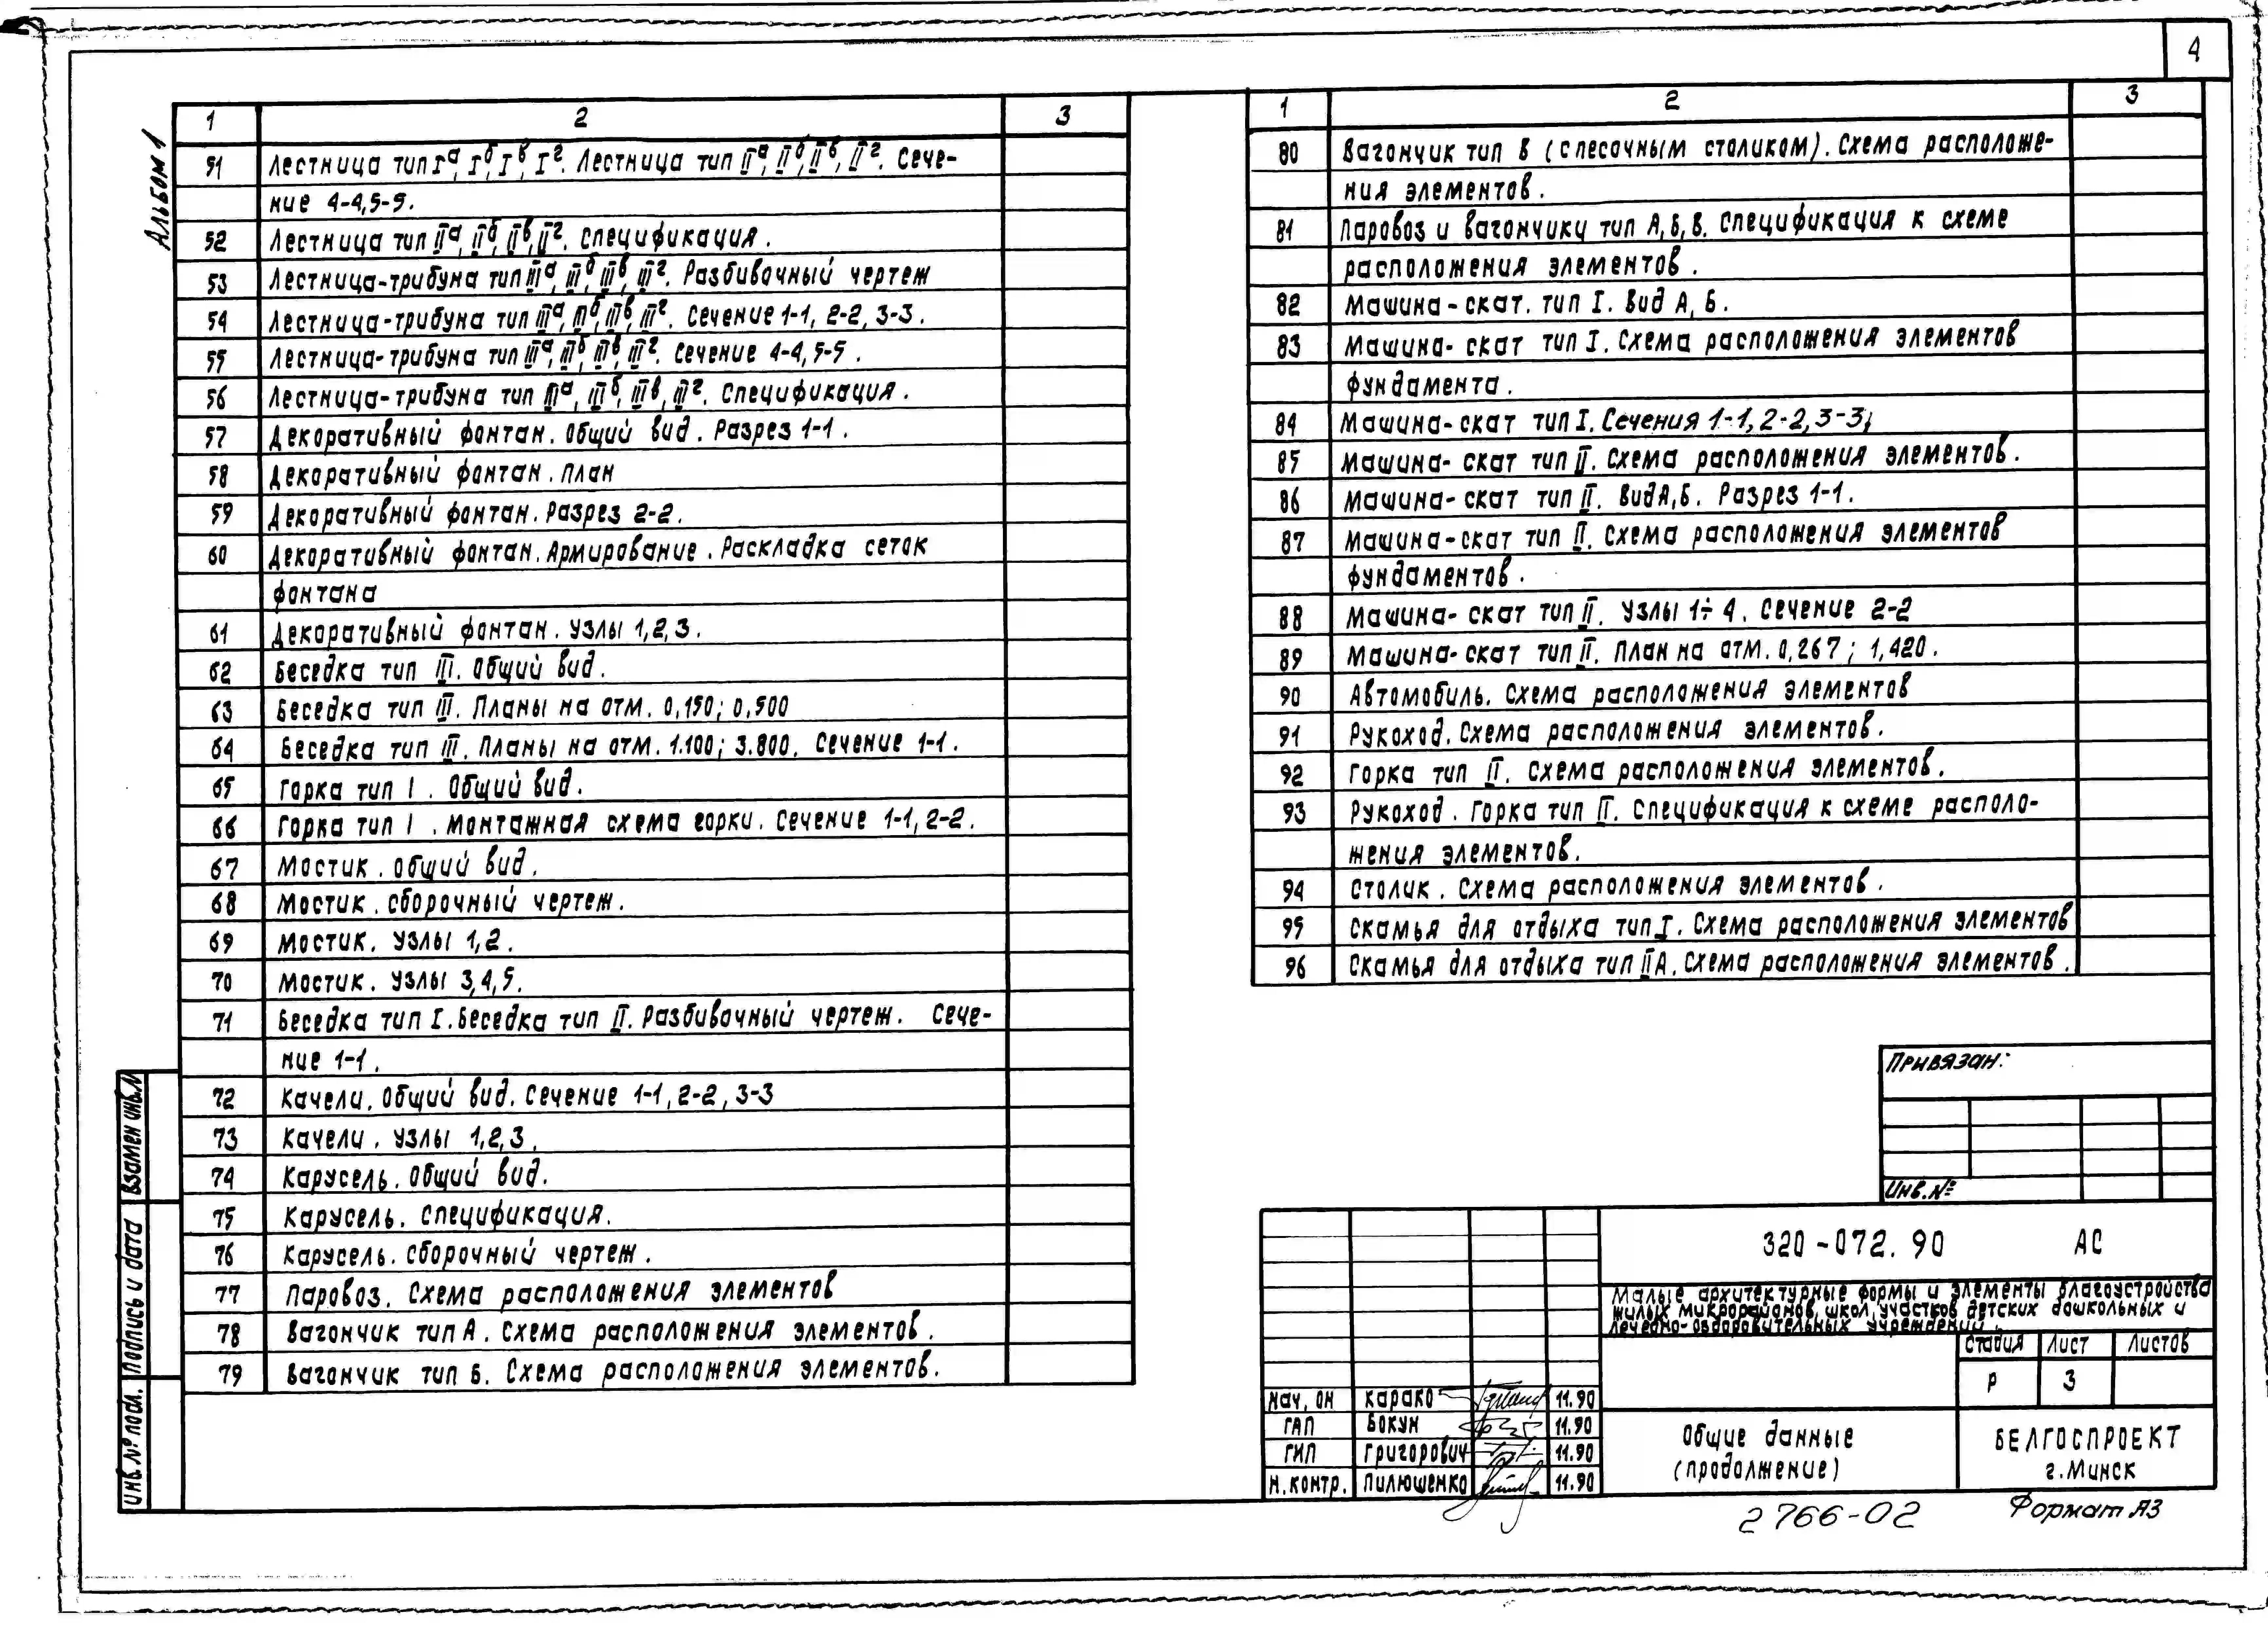 4
Альбом 1
1 2 3
51 Лестница тип Iа, Iб, Iв, Iг. Лестница тип IIа, IIб, IIв, IIг. Сече-
ние 4-4, 5-5.
52 Лестница тип IIа, IIб, IIв, IIг. Спецификация.
53 Лестница-трибуна тип IIIа, IIIб, IIIв, IIIг. Разбивочный чертеж
54 Лестница-трибуна тип IIIа, IIIб, IIIв, IIIг. Сечение 1-1, 2-2, 3-3.
55 Лестница-трибуна тип IIIа, IIIб, IIIв, IIIг. Сечение 4-4, 5-5.
56 Лестница-трибуна тип IIIа, IIIб, IIIв, IIIг. Спецификация.
57 Декоративный фонтан. Общий вид. Разрез 1-1.
58 Декоративный фонтан. План
59 Декоративный фонтан. Разрез 2-2.
60 Декоративный фонтан. Армирование. Раскладка сеток
фонтана
61 Декоративный фонтан. Узлы 1,2,3.
62 Беседка тип III. Общий вид.
63 Беседка тип III. Планы на отм. 0,150; 0,500
64 Беседка тип III. Планы на отм. 1.100; 3.800. Сечение 1-1.
65 Горка тип I. Общий вид.
66 Горка тип I. Монтажная схема горки. Сечение 1-1, 2-2.
67 Мостик. Общий вид.
68 Мостик. Сборочный чертеж.
69 Мостик. Узлы 1,2.
70 Мостик. Узлы 3,4,5.
71 Беседка тип I. Беседка тип II. Разбивочный чертеж. Сече-
ние 1-1.
72 Качели. Общий вид. Сечение 1-1, 2-2, 3-3
73 Качели. Узлы 1,2,3.
74 Карусель. Общий вид.
75 Карусель. Спецификация.
76 Карусель. Сборочный чертеж.
77 Паровоз. Схема расположения элементов
78 Вагончик тип А. Схема расположения элементов.
79 Вагончик тип Б. Схема расположения элементов.
1 2 3
80 Вагончик тип В (с песочным столиком). Схема расположе-
ния элементов.
81 Паровоз и вагончики тип А, Б, В. Спецификация к схеме
расположения элементов.
82 Машина-скат. тип I. Вид А, Б.
83 Машина-скат тип I. Схема расположения элементов
фундамента.
84 Машина-скат тип I. Сечения 1-1, 2-2, 3-3;
85 Машина-скат тип II. Схема расположения элементов.
86 Машина-скат тип II. Вид А, Б. Разрез 1-1.
87 Машина-скат тип II. Схема расположения элементов
фундаментов.
88 Машина-скат тип II. Узлы 1÷4. Сечение 2-2
89 Машина-скат тип II. План на отм. 0,267; 1,420.
90 Автомобиль. Схема расположения элементов
91 Рукоход. Схема расположения элементов.
92 Горка тип II. Схема расположения элементов.
93 Рукоход. Горка тип II. Спецификация к схеме располо-
жения элементов.
94 Столик. Схема расположения элементов.
95 Скамья для отдыха тип I. Схема расположения элементов
96 Скамья для отдыха тип IIА. Схема расположения элементов.
Привязан:
Инв.№
320-072.90 АС
Малые архитектурные формы и элементы благоустройства
жилых микрорайонов, школ, участков детских дошкольных и
лечебно-оздоровительных учреждений.
Стадия Лист Листов
Р 3
Нач. ОН Карако 11.90
ГАП Бокун 11.90
ГИП Григорович 11.90
Н.контр. Пилюшенко 11.90
Общие данные
(продолжение)
БЕЛГОСПРОЕКТ
г. Минск
2766-02
Формат А3
Взамен инв.N
Подпись и дата
Инв.№ подл.